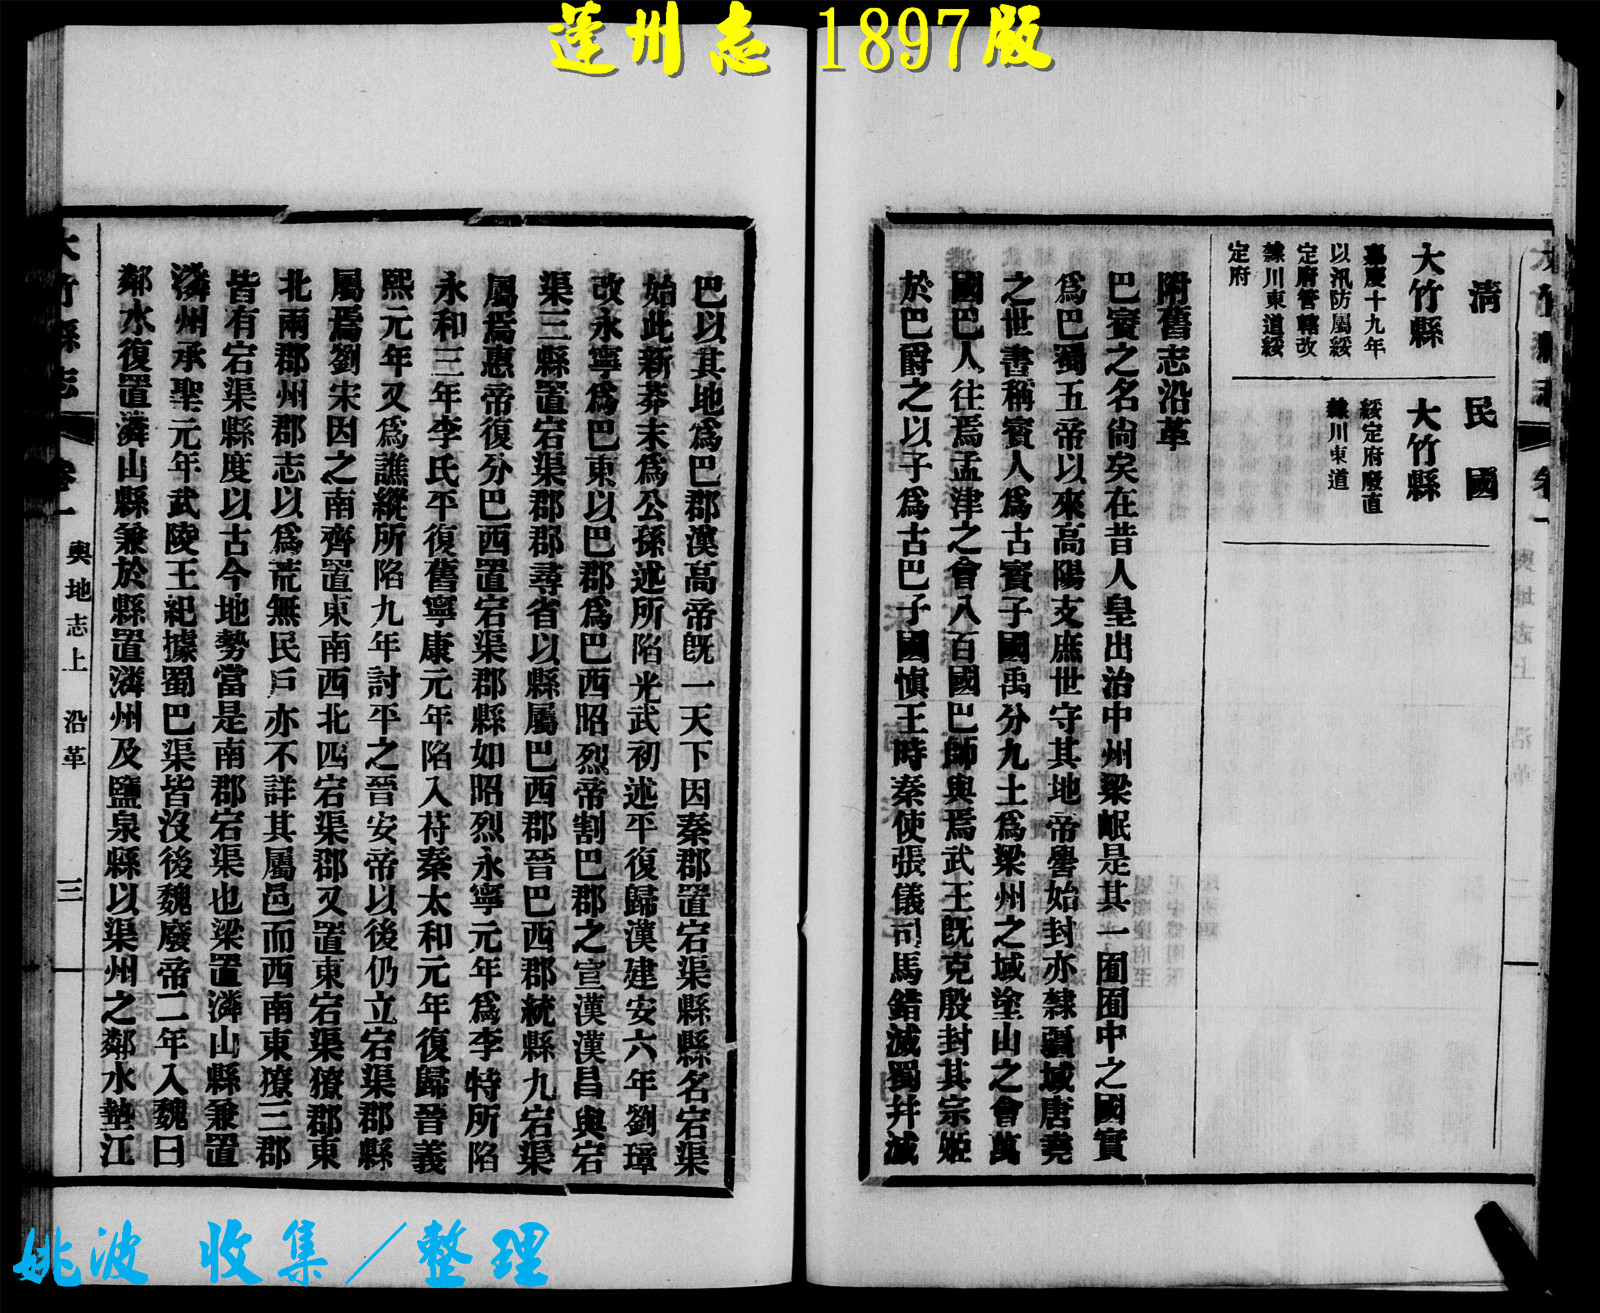 蓬州志 1897版
清
大竹縣
嘉慶十九年
以汛防屬綏
定府管轄改
隸川東道綏
定府
民國
大竹縣
綏定府廢直
隸川東道
附舊志沿革
巴賨之名尙矣在昔人皇出治中州梁岷是其一囿囿中之國實
爲巴蜀五帝以來高陽支庶世守其地帝嚳始封亦隸疆域唐堯
之世書稱賨人爲古賨子國禹分九土爲梁州之域塗山之會萬
國巴人往焉孟津之會入百國巴師與焉武王旣克殷封其宗姬
於巴爵之以子爲古巴子國愼王時秦使張儀司馬錯滅蜀幷滅
巴以其地爲巴郡漢高帝旣一天下因秦郡置宕渠縣縣名宕渠
始此新莽末爲公孫述所陷光武初述平復歸漢建安六年劉璋
改永寧爲巴東以巴郡爲巴西昭烈帝割巴郡之宣漢漢昌與宕
渠三縣置宕渠郡郡尋省以縣屬巴西郡晉巴西郡統縣九宕渠
屬焉惠帝復分巴西置宕渠郡縣如昭烈永寧元年爲李特所陷
永和三年李氏平復舊寧康元年陷入苻秦太和元年復歸晉義
熙元年又爲譙縱所陷九年討平之晉安帝以後仍立宕渠郡縣
屬焉劉宋因之南齊置東南西北四宕渠郡又置東宕渠獠郡東
北兩郡州郡志以爲荒無民戶亦不詳其屬邑而西南東獠三郡
皆有宕渠縣度以古今地勢當是南郡宕渠也梁置潾山縣兼置
潾州承聖元年武陵王紀據蜀巴渠皆沒後魏廢帝二年入魏曰
鄰水復置潾山縣兼於縣置潾州及鹽泉縣以渠州之鄰水墊江
大竹縣志
卷一
輿地志上 沿革
三
姚波 收集／整理